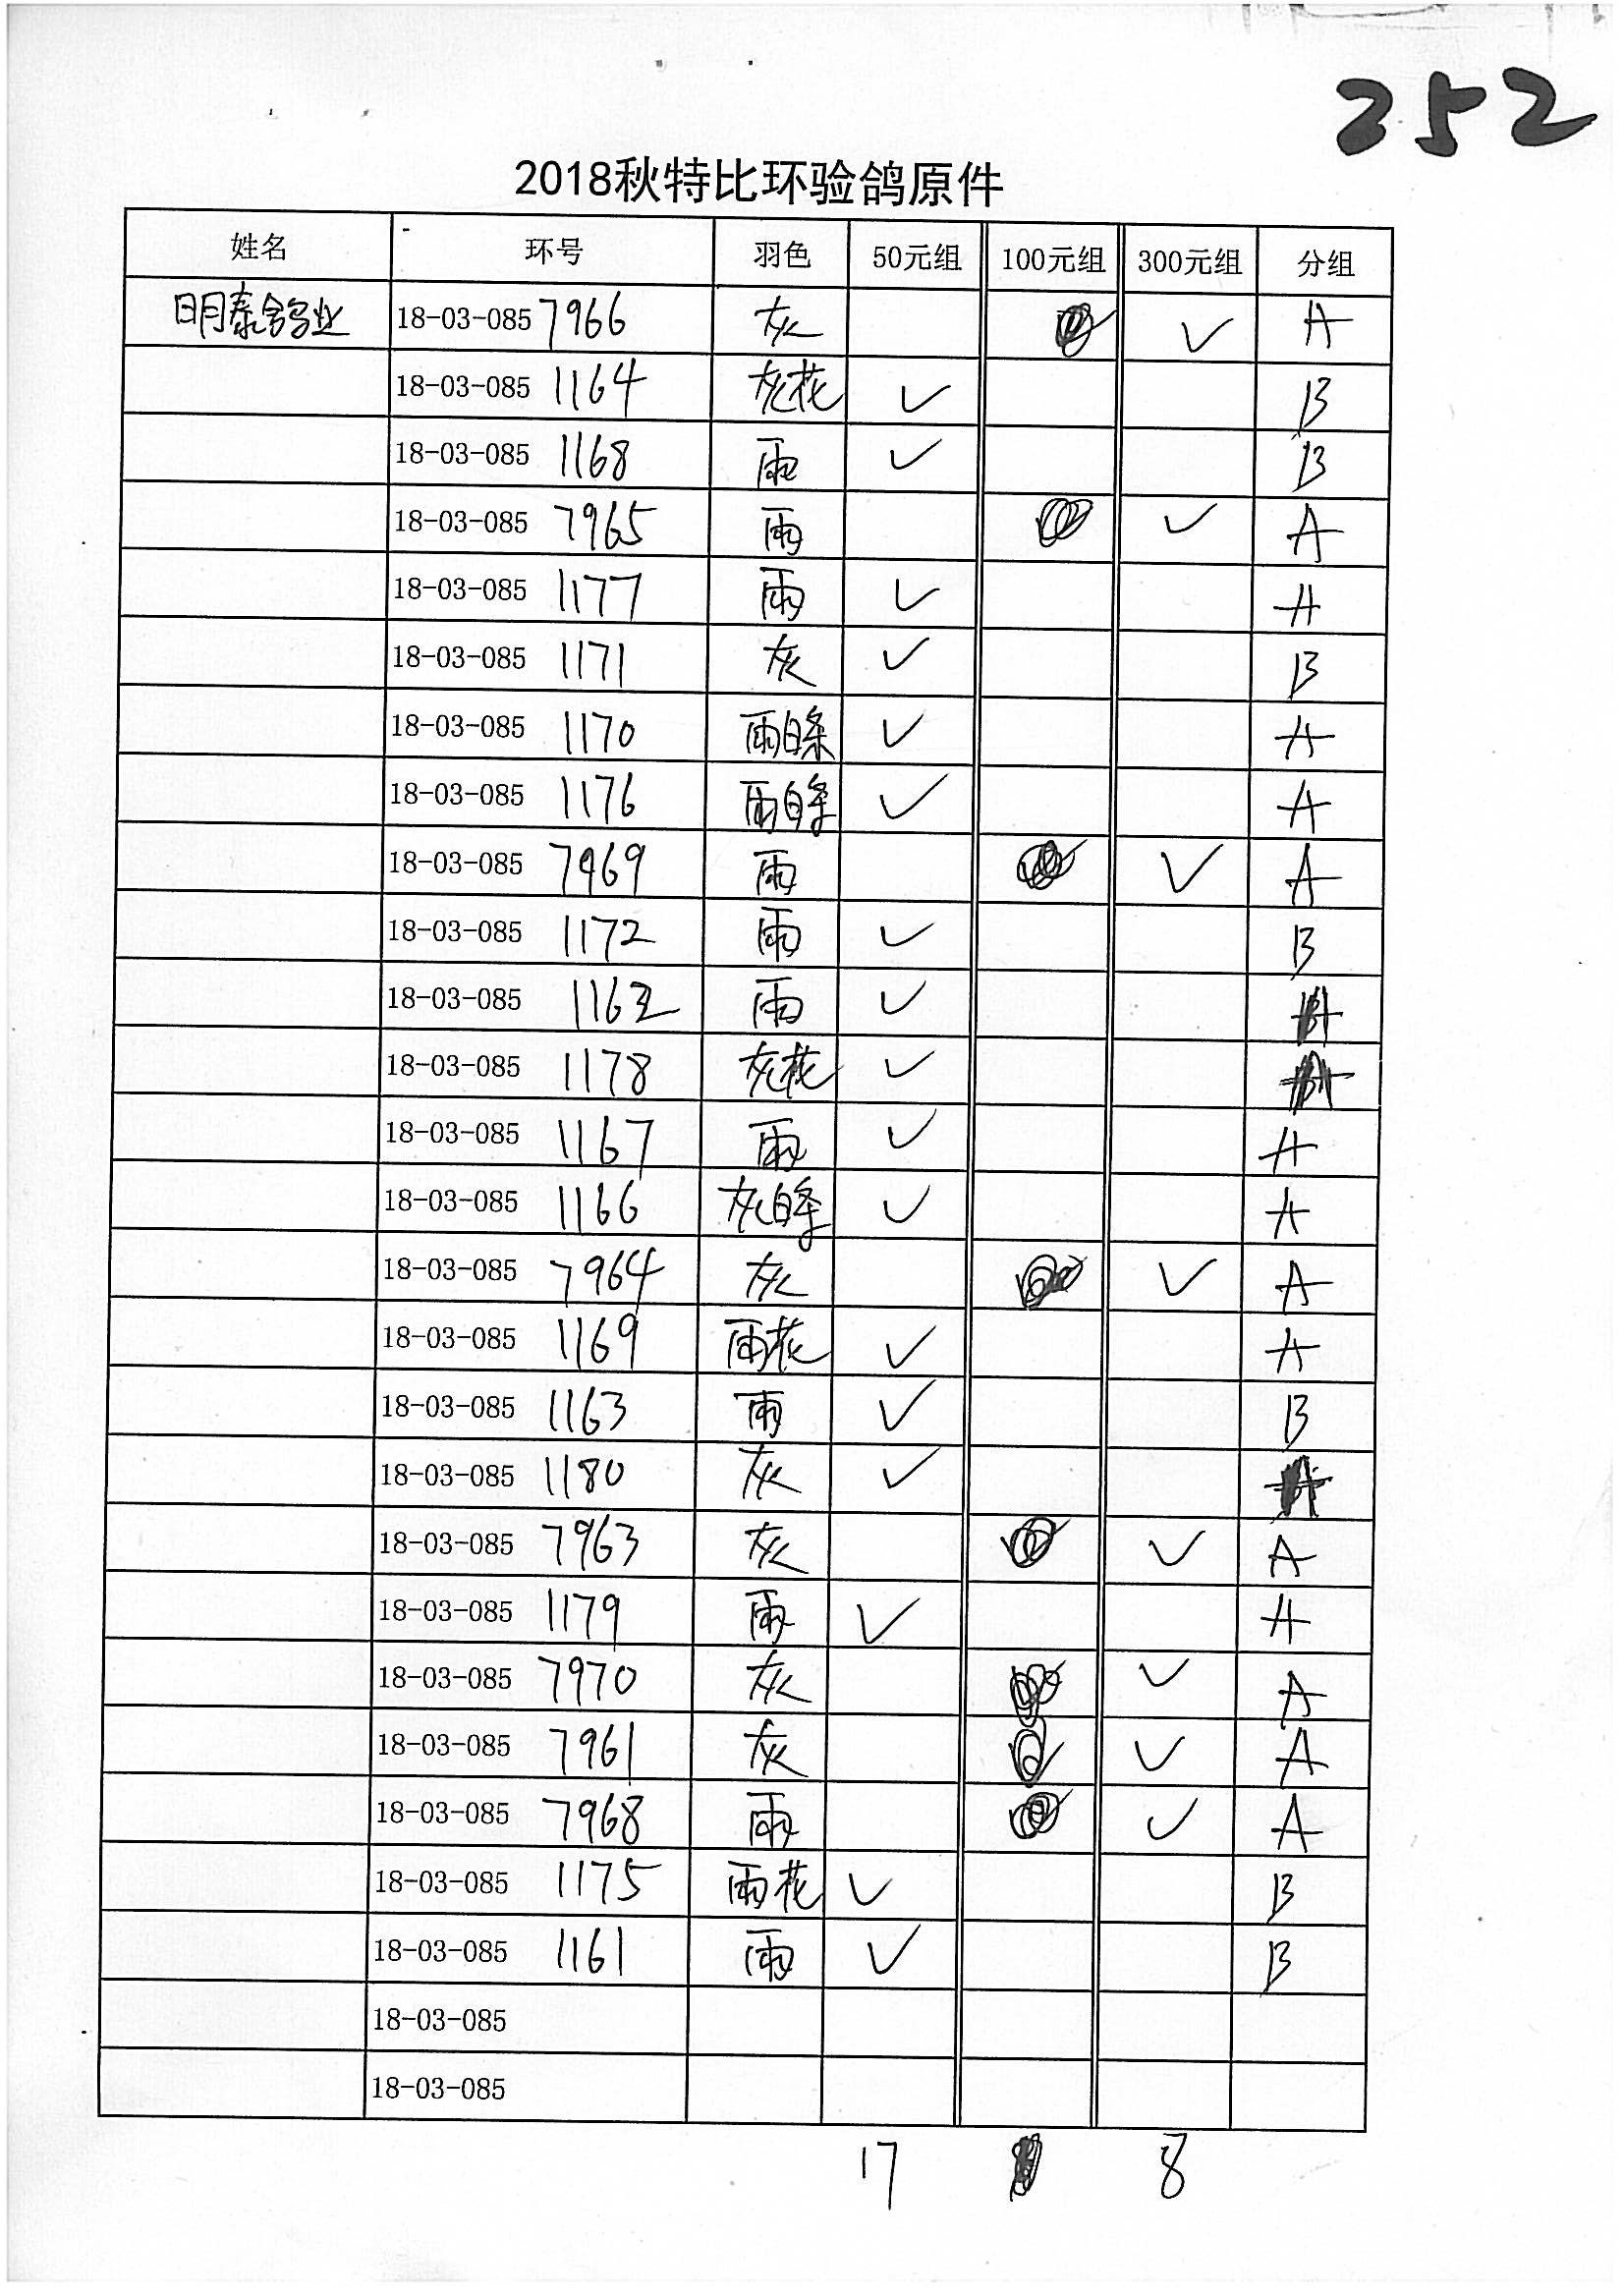 252
2018秋特比环验鸽原件
姓名 环号 羽色 50元组 100元组 300元组 分组
明泰鸽业 18-03-085 7966 灰 ✓ A
18-03-085 1164 灰花 ✓ B
18-03-085 1168 雨 ✓ B
18-03-085 7965 雨 ✓ A
18-03-085 1177 雨 ✓ A
18-03-085 1171 灰 ✓ B
18-03-085 1170 雨白条 ✓ A
18-03-085 1176 雨白条 ✓ A
18-03-085 7969 雨 ✓ A
18-03-085 1172 雨 ✓ B
18-03-085 1162 雨 ✓
18-03-085 1178 灰花 ✓
18-03-085 1167 雨 ✓ A
18-03-085 1166 灰白条 ✓ A
18-03-085 7964 灰 ✓ A
18-03-085 1169 雨花 ✓ A
18-03-085 1163 雨 ✓ B
18-03-085 1180 灰 ✓
18-03-085 7963 灰 ✓ A
18-03-085 1179 雨 ✓ A
18-03-085 7970 灰 ✓ A
18-03-085 7961 灰 ✓ A
18-03-085 7968 雨 ✓ A
18-03-085 1175 雨花 ✓ B
18-03-085 1161 雨 ✓ B
18-03-085
18-03-085
17 8